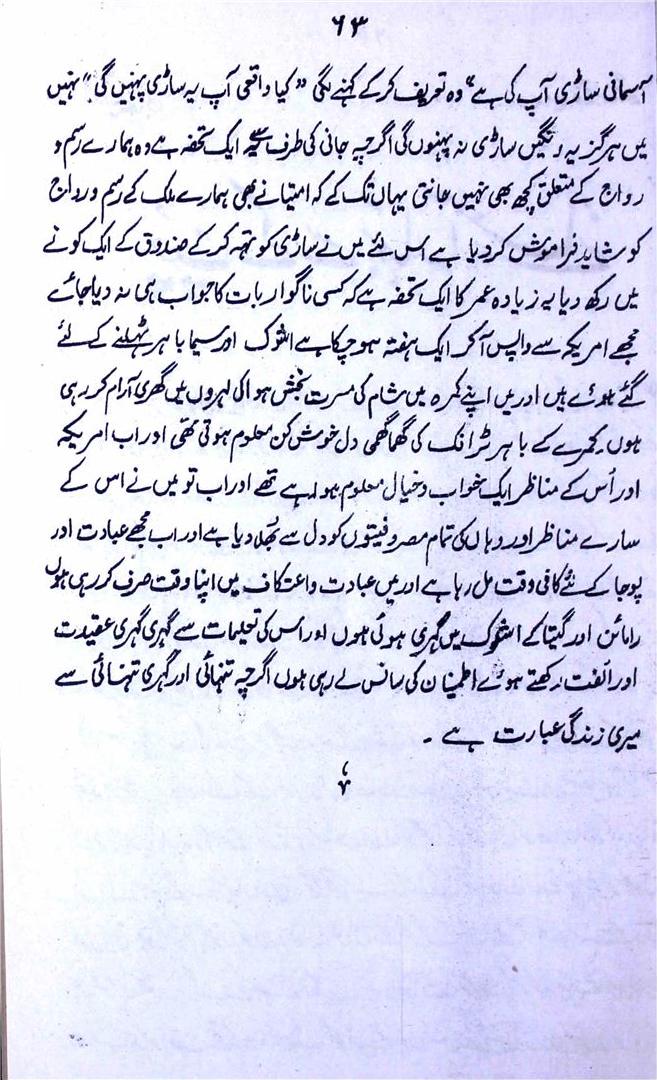 ۶۳
آسمانی ساڑی آپ کی ہے“ وہ تعریف کرکے کہنے لگی ”کیا واقعی آپ یہ ساڑی پہنیں گی“؟ نہیں
میں ہرگز یہ رنگیں ساڑی نہ پہنوں گی اگرچہ جانی کی طرف سے یہ ایک تحفہ ہے وہ ہمارے رسم و
رواج کے متعلق کچھ بھی نہیں جانتی یہاں تک کے کہ امتیا نے بھی ہمارے ملک کے رسم و رواج
کو شاید فراموش کر دیا ہے اس لئے میں نے ساڑی کو تہہ کرکے صندوق کے ایک کونے
میں رکھ دیا یہ زیادہ عمر کا ایک تحفہ ہے کہ کسی ناگوار بات کا جواب ہی نہ دیا جائے
مجھے امریکہ سے واپس آکر ایک ہفتہ ہو چکا ہے اشوک اور سیما باہر ٹہلنے کے لئے
گئے ہوئے ہیں اور میں اپنے کمرہ میں شام کی مسرت بخش ہوا کی لہروں میں گھری آرام کر رہی
ہوں۔ کمرے کے باہر ٹرافک کی گھماگھمی دل خوش کن معلوم ہوتی تھی اور اب امریکہ
اور اُس کے مناظر ایک خواب و خیال معلوم ہو رہے تھے اور اب تو میں نے اس کے
سارے مناظر اور وہاں کی تمام مصروفیتوں کو دل سے بُھلا دیا ہے اور اب مجھے عبادت اور
پوجا کے لئے کافی وقت مل رہا ہے اور میں عبادت و اعتکاف میں اپنا وقت صرف کر رہی ہوں
رامائن اور گیتا کے اشلوک میں گہری ہوئی ہوں اور اس کی تعلیمات سے گہری گہری عقیدت
اور الفت رکھتے ہوئے اطمینان کی سانس لے رہی ہوں اگرچہ تنہائی اور گہری تنہائی سے
میری زندگی عبارت ہے ۔